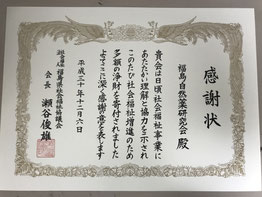 感謝状
福島自然薬研究会 殿
貴会は日頃社会福祉事業に
あたたかい理解と協力を示され
このたび社会福祉増進のため
多額の浄財を寄付されました
よってここに深く感謝の意を表します
平成三十年十二月六日
社会福祉法人 福島県社会福祉協議会
会長 瀬谷俊雄